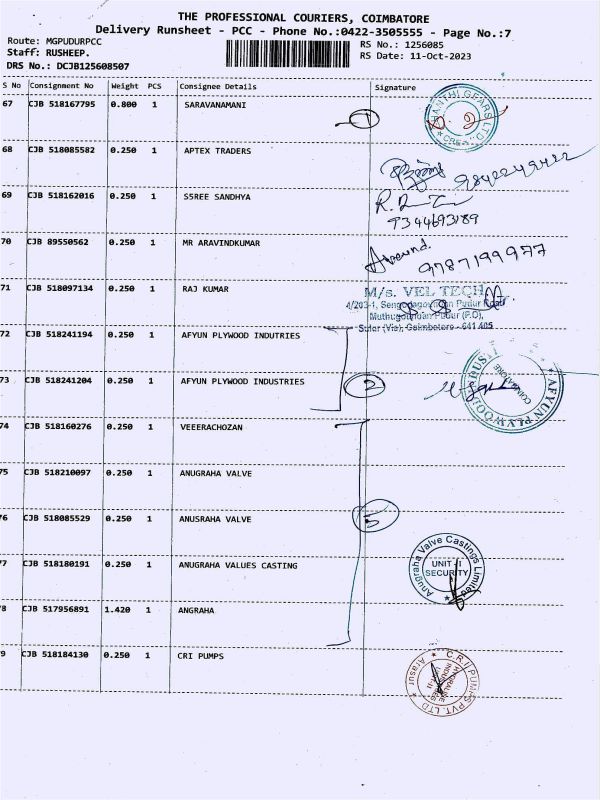 THE PROFESSIONAL COURIERS, COIMBATORE
Delivery Runsheet - PCC - Phone No.:0422-3505555 - Page No.:7
Route: MGPUDURPCC
Staff: RUSHEEP.
DRS No.: DCJB125608507
RS No.: 1256085
RS Date: 11-Oct-2023
S No Consignment No Weight PCS Consignee Details Signature
67 CJB 518167795 0.800 1 SARAVANAMANI
1
68 CJB 518085582 0.250 1 APTEX TRADERS
9842249422
69 CJB 518162016 0.250 1 S5REE SANDHYA
9344693189
70 CJB 89550562 0.250 1 MR ARAVINDKUMAR
Aravind.
9787199977
71 CJB 518097134 0.250 1 RAJ KUMAR
M/s. VEL TECH
Muthugoundan Pudur (P.O),
Sulur (Via), Coimbatore - 641 405
72 CJB 518241194 0.250 1 AFYUN PLYWOOD INDUTRIES
73 CJB 518241204 0.250 1 AFYUN PLYWOOD INDUSTRIES
2
AFYUN PLYWOOD
COIMBATORE
74 CJB 518160276 0.250 1 VEEERACHOZAN
75 CJB 518210097 0.250 1 ANUGRAHA VALVE
76 CJB 518085529 0.250 1 ANUSRAHA VALVE
5
77 CJB 518180191 0.250 1 ANUGRAHA VALUES CASTING
Anugraha Valve Castings Limited
UNIT - I
SECURITY
8 CJB 517956891 1.420 1 ANGRAHA
9 CJB 518184130 0.250 1 CRI PUMPS
C.R.I. PUMPS PVT. LTD
Arasur